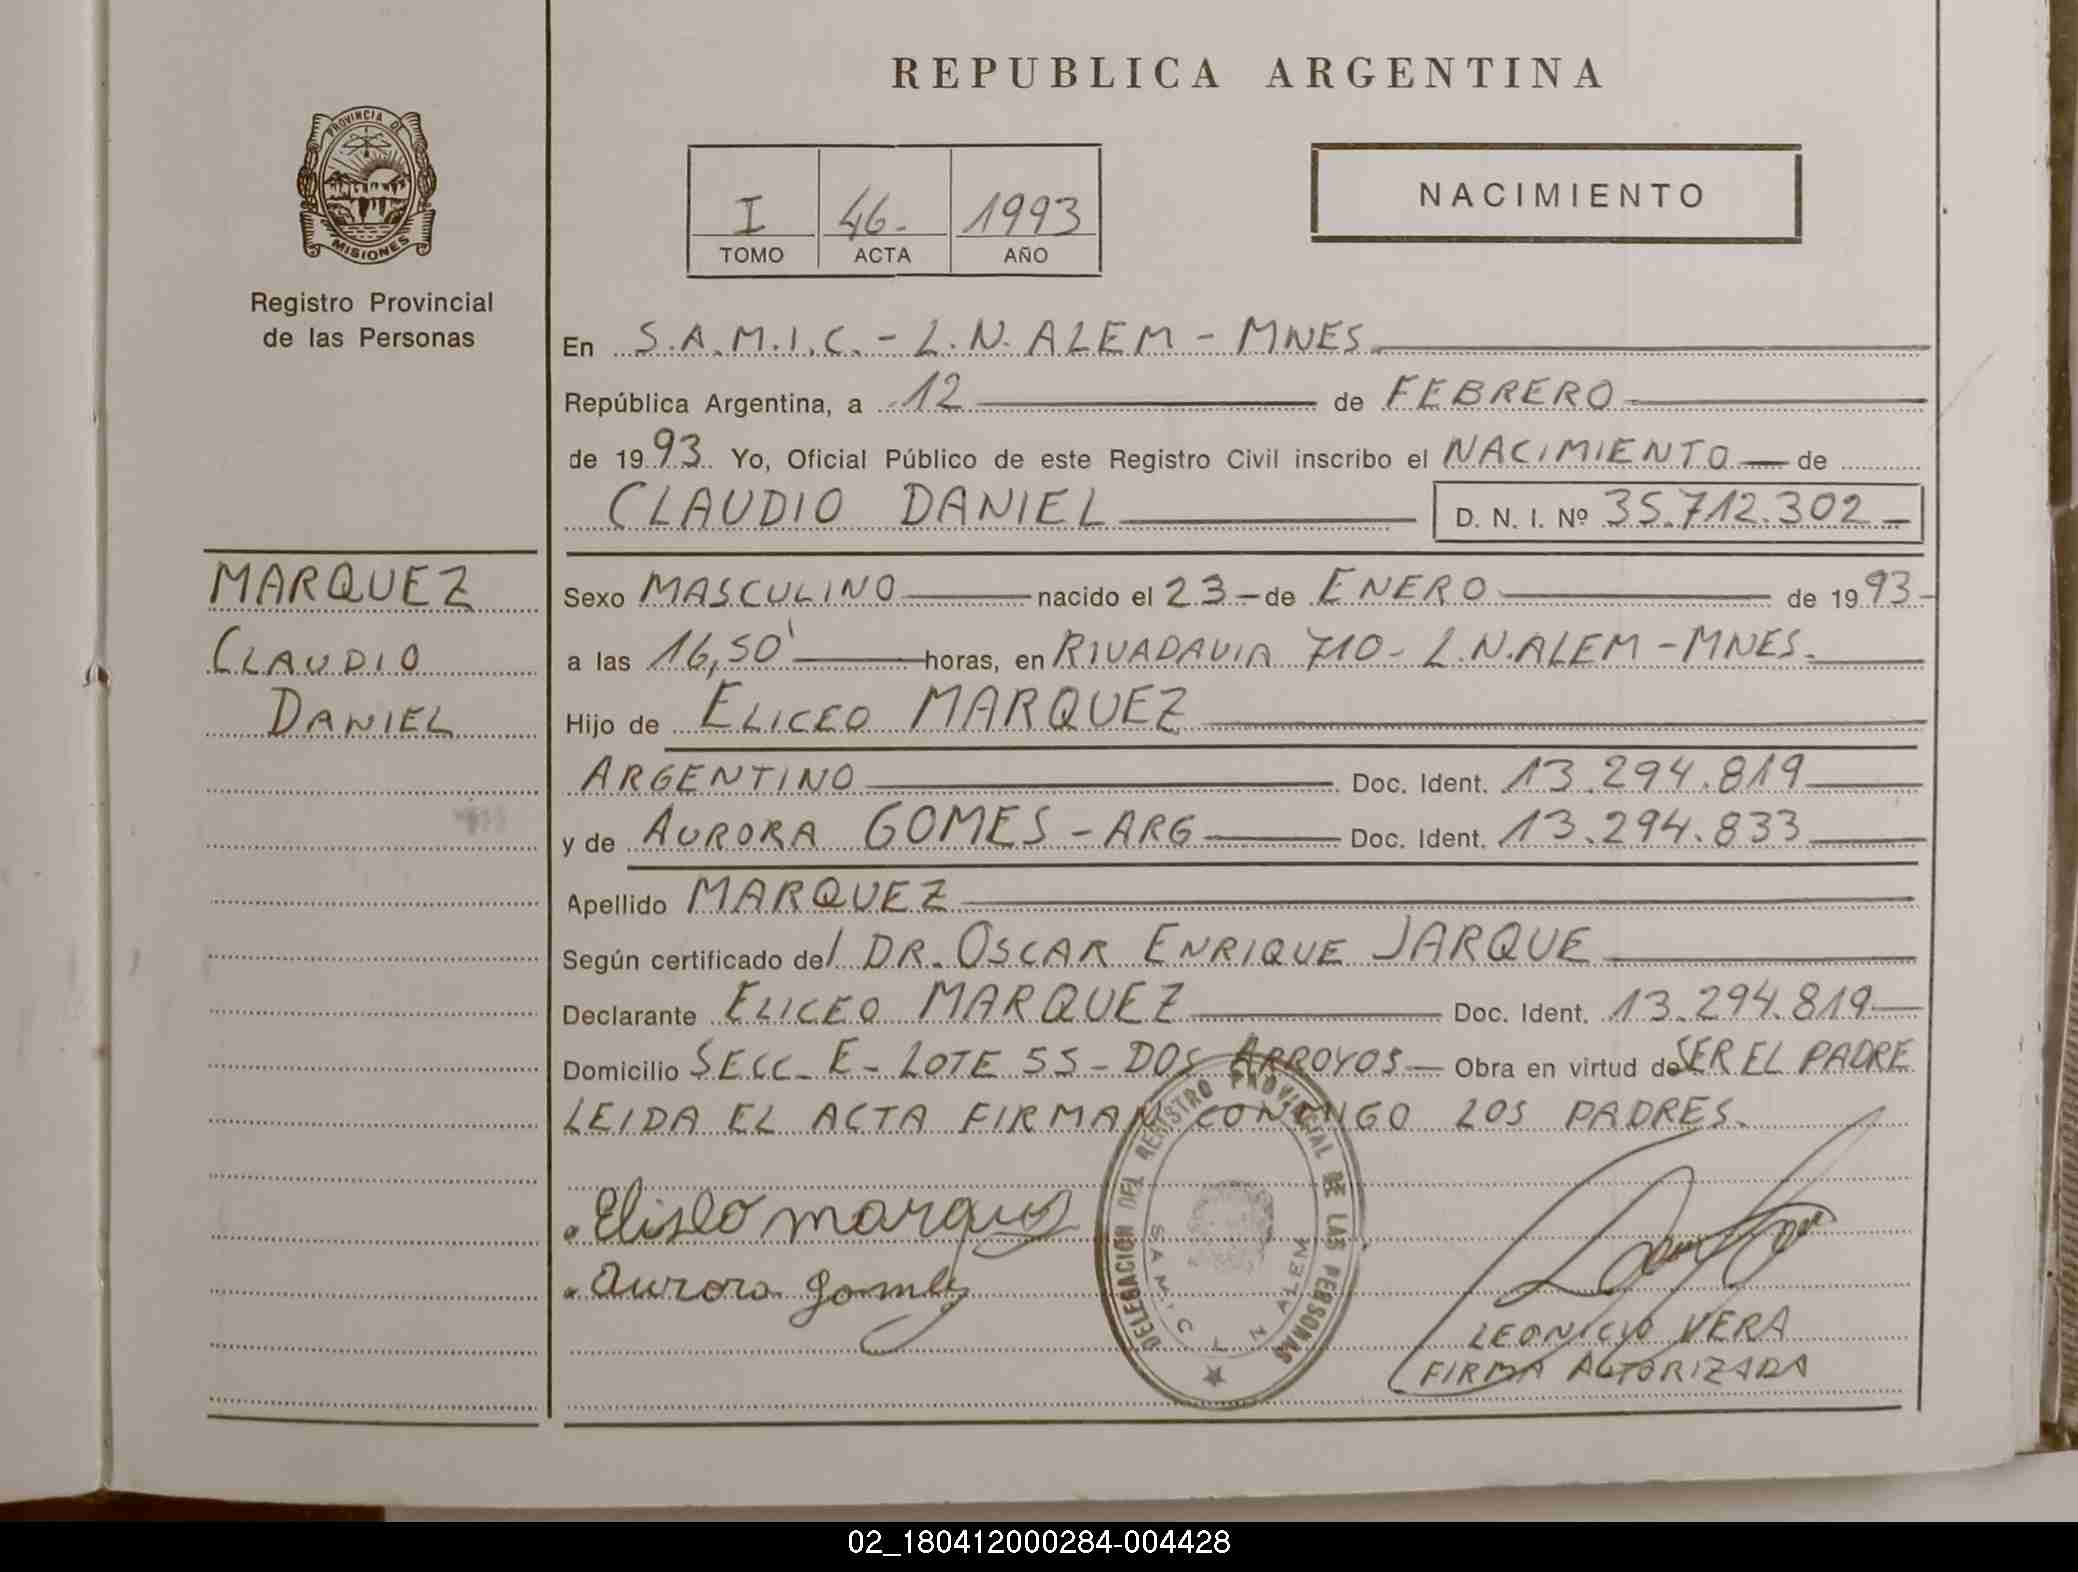 REPUBLICA ARGENTINA
PROVINCIA DE
MISIONES
Registro Provincial
de las Personas
I 46- 1993
TOMO ACTA AÑO
NACIMIENTO
En S.A.M.I.C. - L.N. ALEM - MNES
República Argentina, a 12 de FEBRERO
de 1993 Yo, Oficial Público de este Registro Civil inscribo el NACIMIENTO de
CLAUDIO DANIEL D. N. I. Nº 35.712.302
MARQUEZ
CLAUDIO
DANIEL
Sexo MASCULINO nacido el 23 de ENERO de 1993
a las 16,50' horas, en RIVADAVIA 710 - L.N.ALEM - MNES.
Hijo de ELICEO MARQUEZ
ARGENTINO Doc. Ident. 13.294.819
y de AURORA GOMES - ARG Doc. Ident. 13.294.833
Apellido MARQUEZ
Según certificado del DR. OSCAR ENRIQUE JARQUE
Declarante ELICEO MARQUEZ Doc. Ident. 13.294.819
Domicilio SECC - E - LOTE 55 - DOS ARROYOS Obra en virtud de SER EL PADRE
LEIDA EL ACTA FIRMAN CONMIGO LOS PADRES.
Eliseo marquez
Aurora gomes
DELEGACION DEL REGISTRO PROVINCIAL DE LAS PERSONAS
SAMIC L N ALEM
LEONICIO VERA
FIRMA AUTORIZADA
02_180412000284-004428